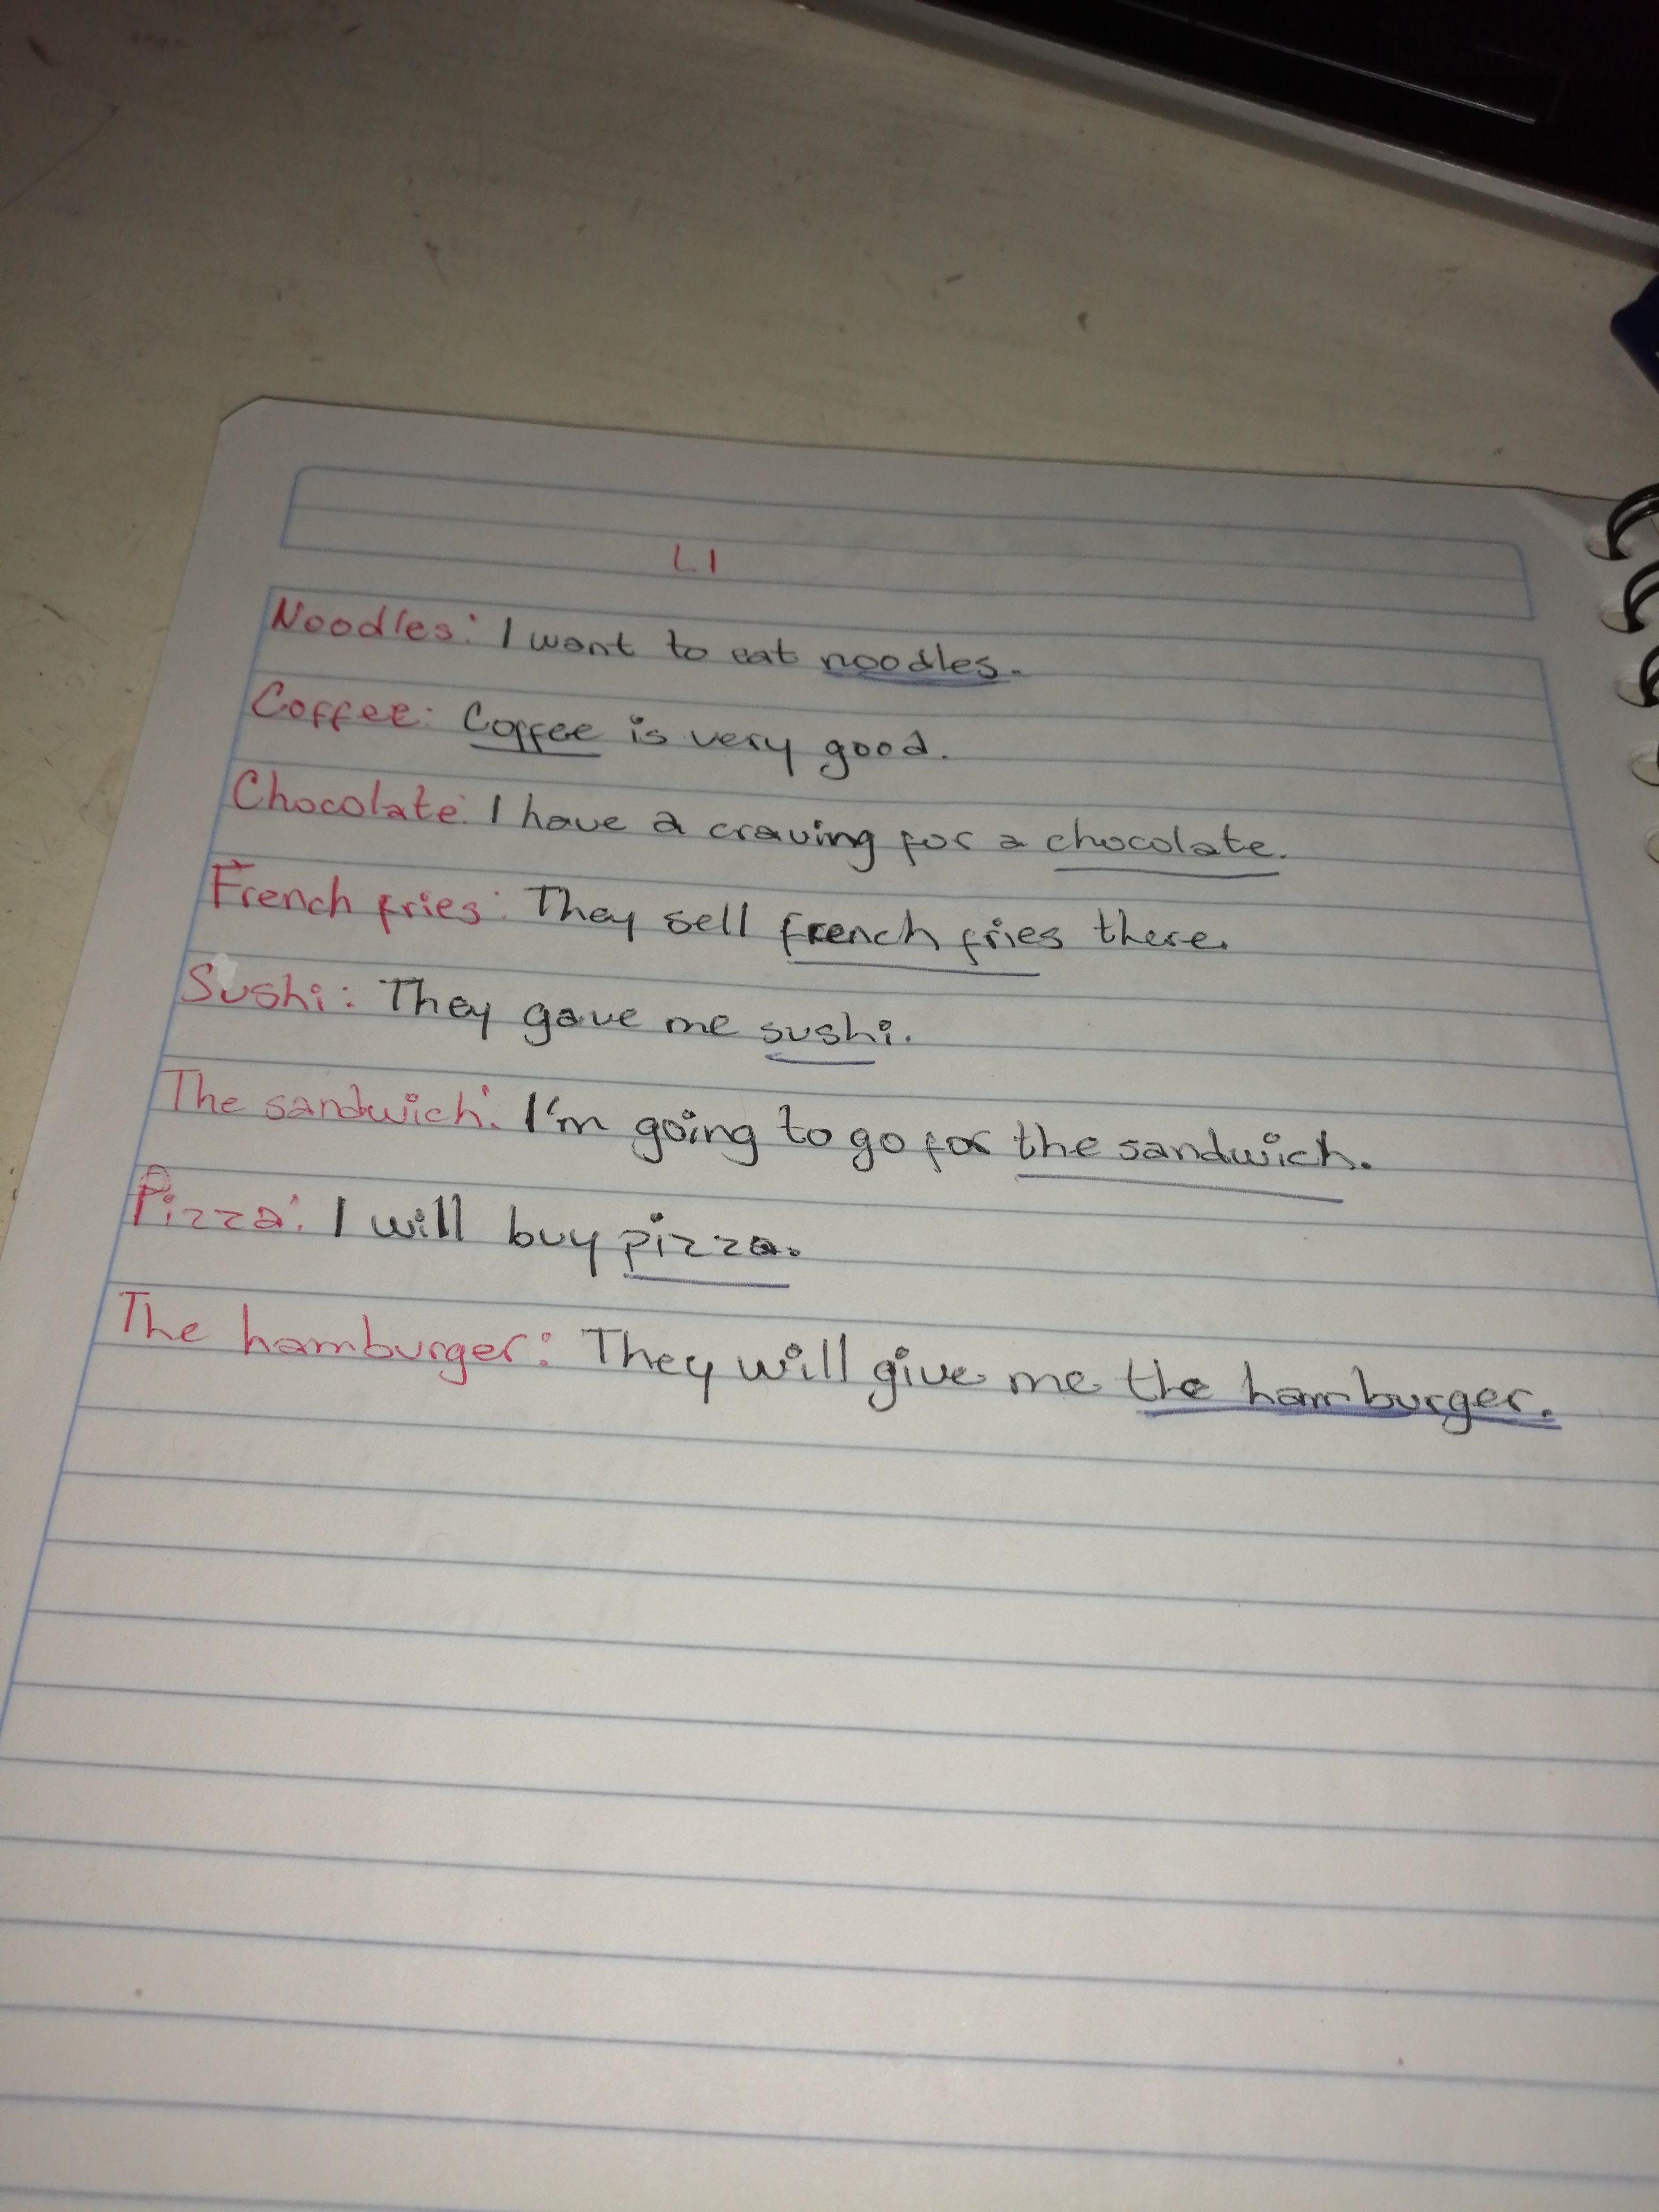 L1
Noodles: I want to eat noodles.
Coffee: Coffee is very good.
Chocolate: I have a craving for a chocolate.
French fries: They sell french fries there.
Sushi: They gave me sushi.
The sandwich: I'm going to go for the sandwich.
Pizza: I will buy pizza.
The hamburger: They will give me the hamburger.